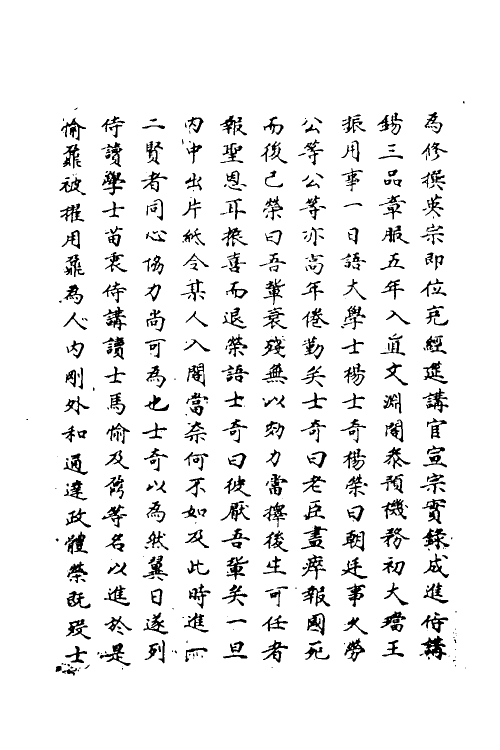 為修撰英宗即位充經筵講官宣宗實錄成進侍講
錫三品章服五年入直文淵閣叅預機務初大璫王
振用事一日語大學士楊士奇楊榮曰朝廷事久勞
公等公等亦高年倦勤矣士奇曰老臣盡瘁報國死
而後已榮曰吾輩衰殘無以効力當擇後生可任者
報聖恩耳振喜而退榮語士奇曰彼厭吾輩矣一旦
内中出片紙令某人入閣當奈何不如及此時進一
二賢者同心協力尚可為也士奇以為然翼日遂列
侍讀學士苗衷侍講讀士馬愉及鼐等名以進於是
愉鼐被擢用鼐為人内剛外和通達政體榮既歿士